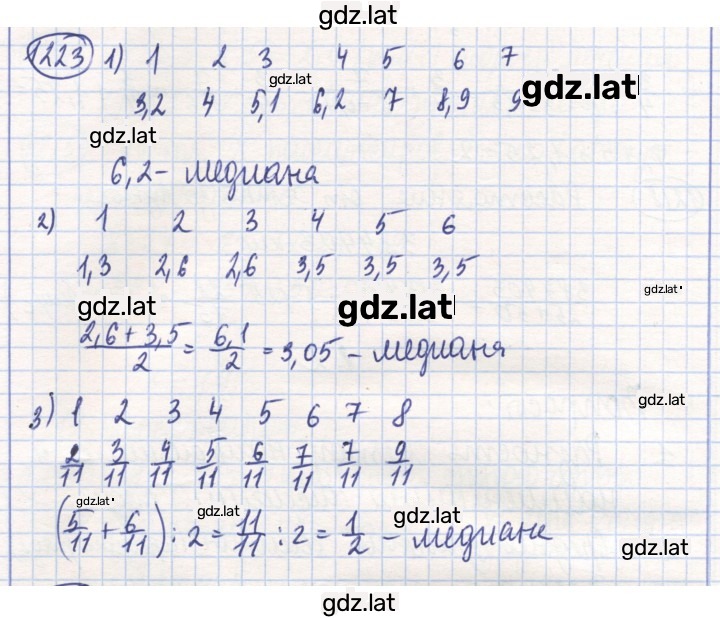 gdz.lat
1223 1) 1 2 3 4 5 6 7
gdz.lat
gdz.lat
3,2 4 5,1 6,2 7 8,9 9
gdz.lat
6,2 - медиана
2) 1 2 3 4 5 6
1,3 2,6 2,6 3,5 3,5 3,5
gdz.lat
gdz.lat gdz.lat
(2,6 + 3,5)/2 = 6,1/2 = 3,05 - медианя
3) 1 2 3 4 5 6 7 8
gdz.lat
2/11 3/11 4/11 5/11 6/11 7/11 7/11 9/11
gdz.lat gdz.lat gdz.lat
(5/11 + 6/11) : 2 = 11/11 : 2 = 1/2 - медиане
gdz.lat
gdz.lat